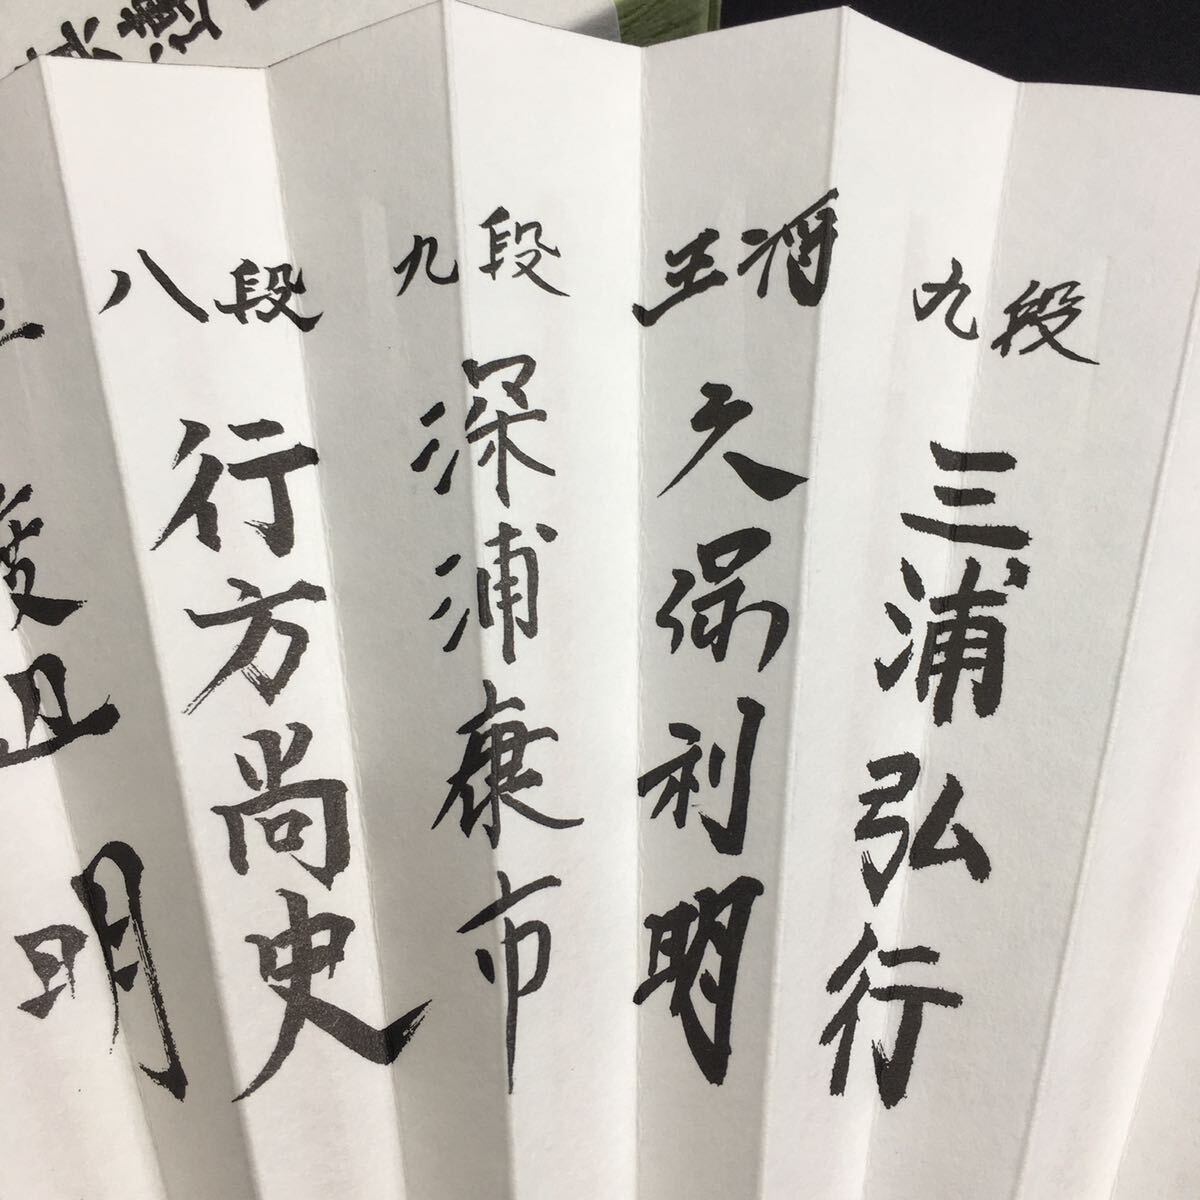 九段 三浦弘行
王将 久保利明
九段 深浦康市
八段 行方尚史
三 渡辺明